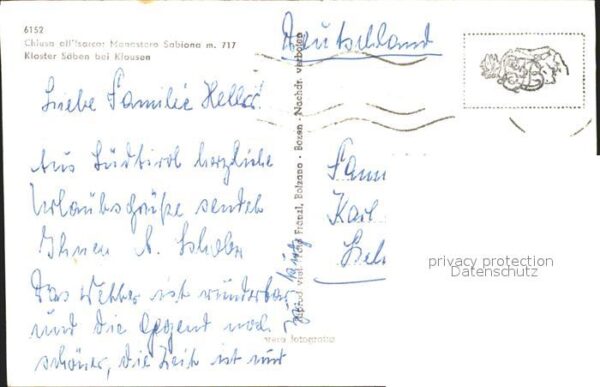 6152
Chiusa all'Isarco: Monastero Sabiona m. 717
Kloster Säben bei Klausen
Deutschland
Liebe Familie Heller
Aus Südtirol herzliche
Urlaubsgrüße sendet
Ihnen
Das Wetter ist wunderbar
und die Gegend noch
schöner, die Zeit ist nur
zu kurz
Fränzl, Bolzano - Bozen - Nachdr. verboten
vera fotografia
Fam
Karl
privacy protection
Datenschutz